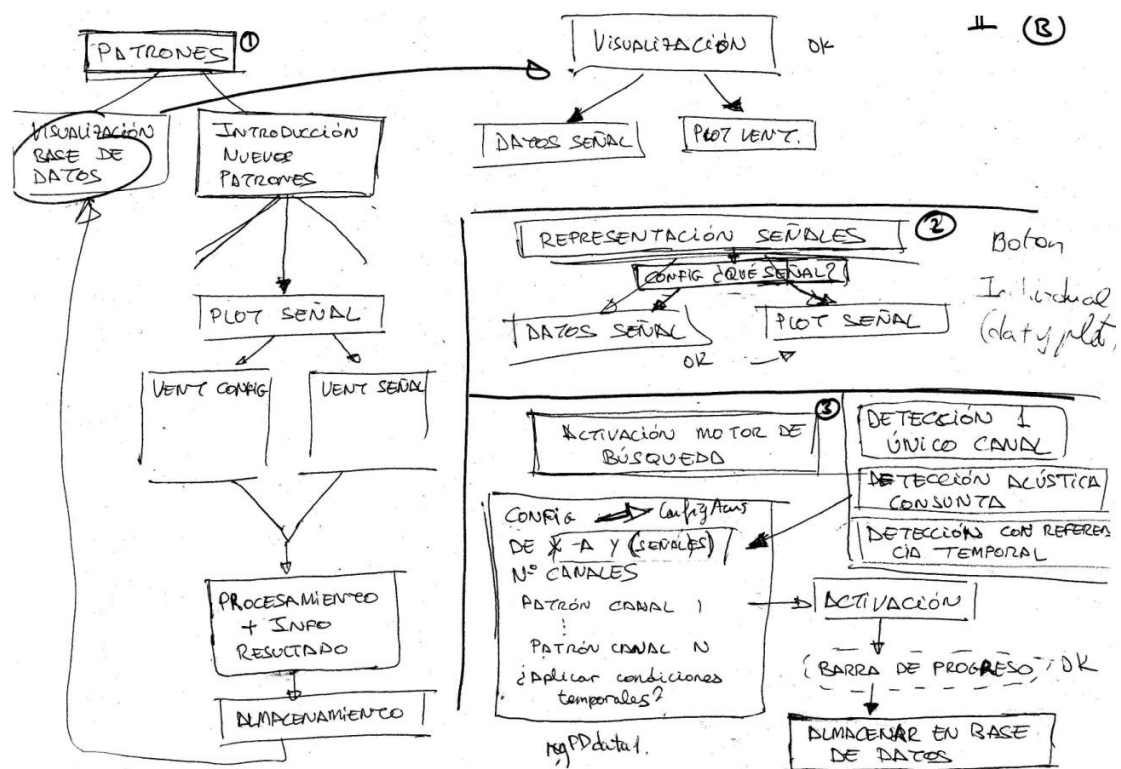 II (B)
PATRONES ①
VISUALIZACIÓN
BASE DE
DATOS
INTRODUCCIÓN
NUEVOS
PATRONES
PLOT SEÑAL
VENT CONFIG
VENT SEÑAL
PROCESAMIENTO
+ INFO
RESULTADO
ALMACENAMIENTO
VISUALIZACIÓN OK
DATOS SEÑAL
PLOT VENT.
REPRESENTACIÓN SEÑALES ②
CONFIG ¿QUÉ SEÑAL?
DATOS SEÑAL
PLOT SEÑAL
OK
Boton
Individual
(dat y plot,
③
ACTIVACIÓN MOTOR DE
BÚSQUEDA
DETECCIÓN 1
ÚNICO CANAL
DETECCIÓN ACÚSTICA
CONJUNTA
DETECCIÓN CON REFEREN
CIA TEMPORAL
CONFIG ConfigAcus
DE X-A Y (SEÑALES)
Nº CANALES
PATRÓN CANAL 1
⋮
PATRÓN CANAL N
¿Aplicar condiciones
temporales?
ACTIVACIÓN
BARRA DE PROGRESO OK
ALMACENAR EN BASE
DE DATOS